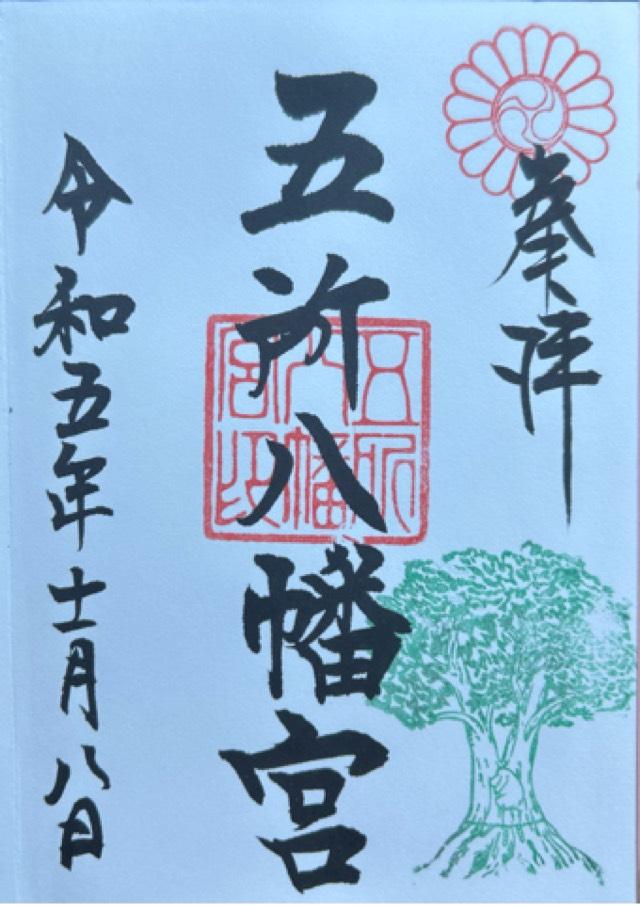 奉拝
五所八幡宮
五所
八幡
宮印
令和五年十一月八日